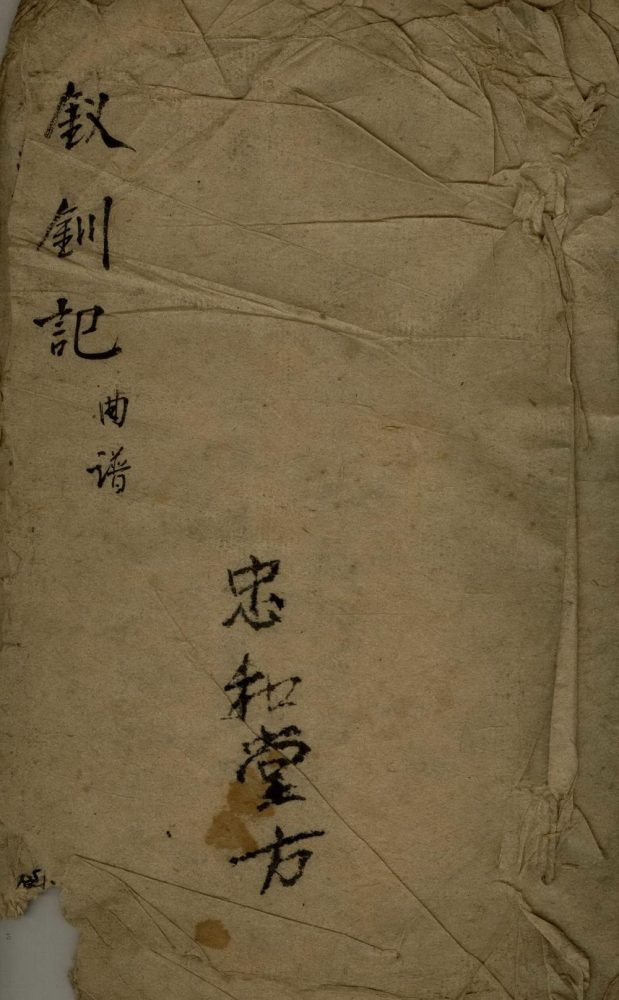 釵釧記曲譜
忠和堂方